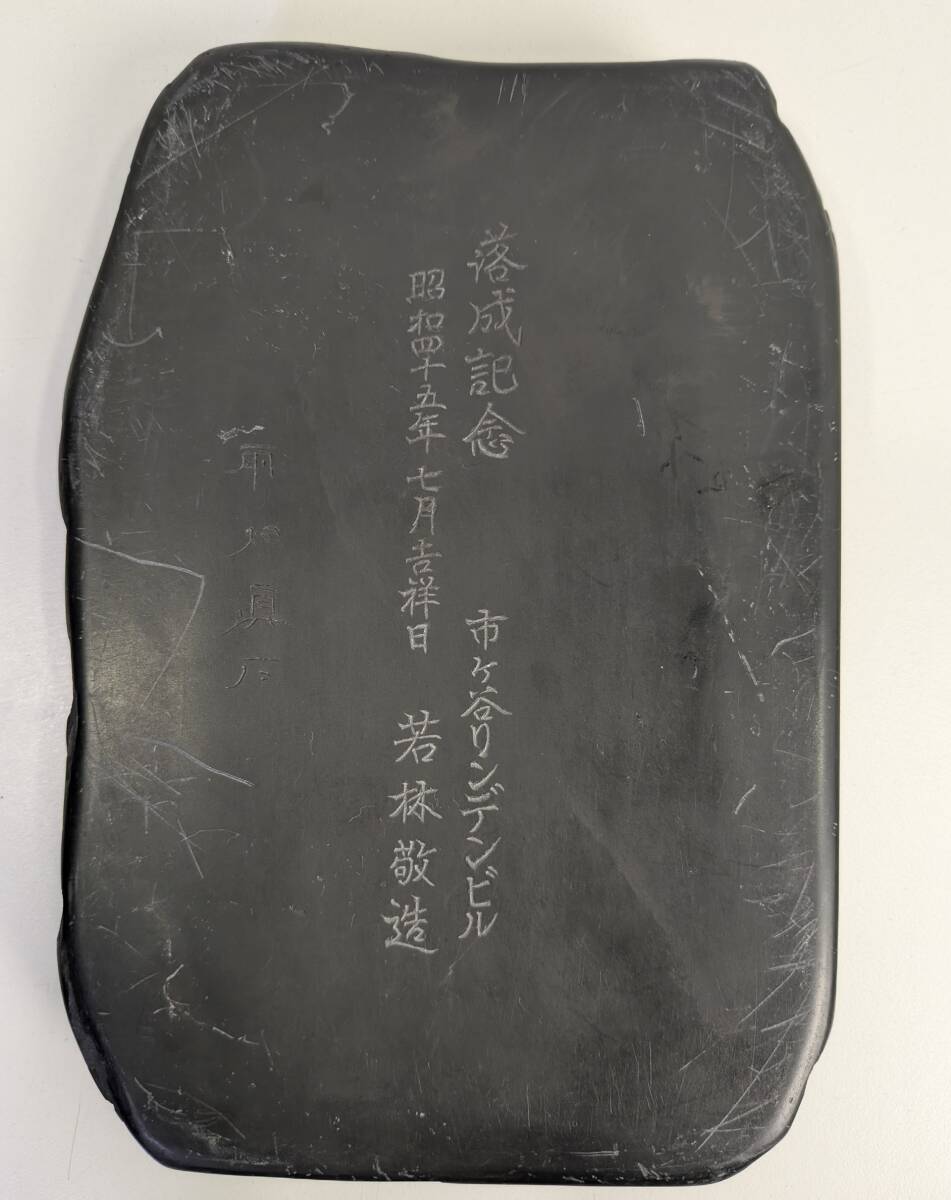 落成記念　市ヶ谷リンデンビル
昭和四十五年七月吉祥日　若林敬造